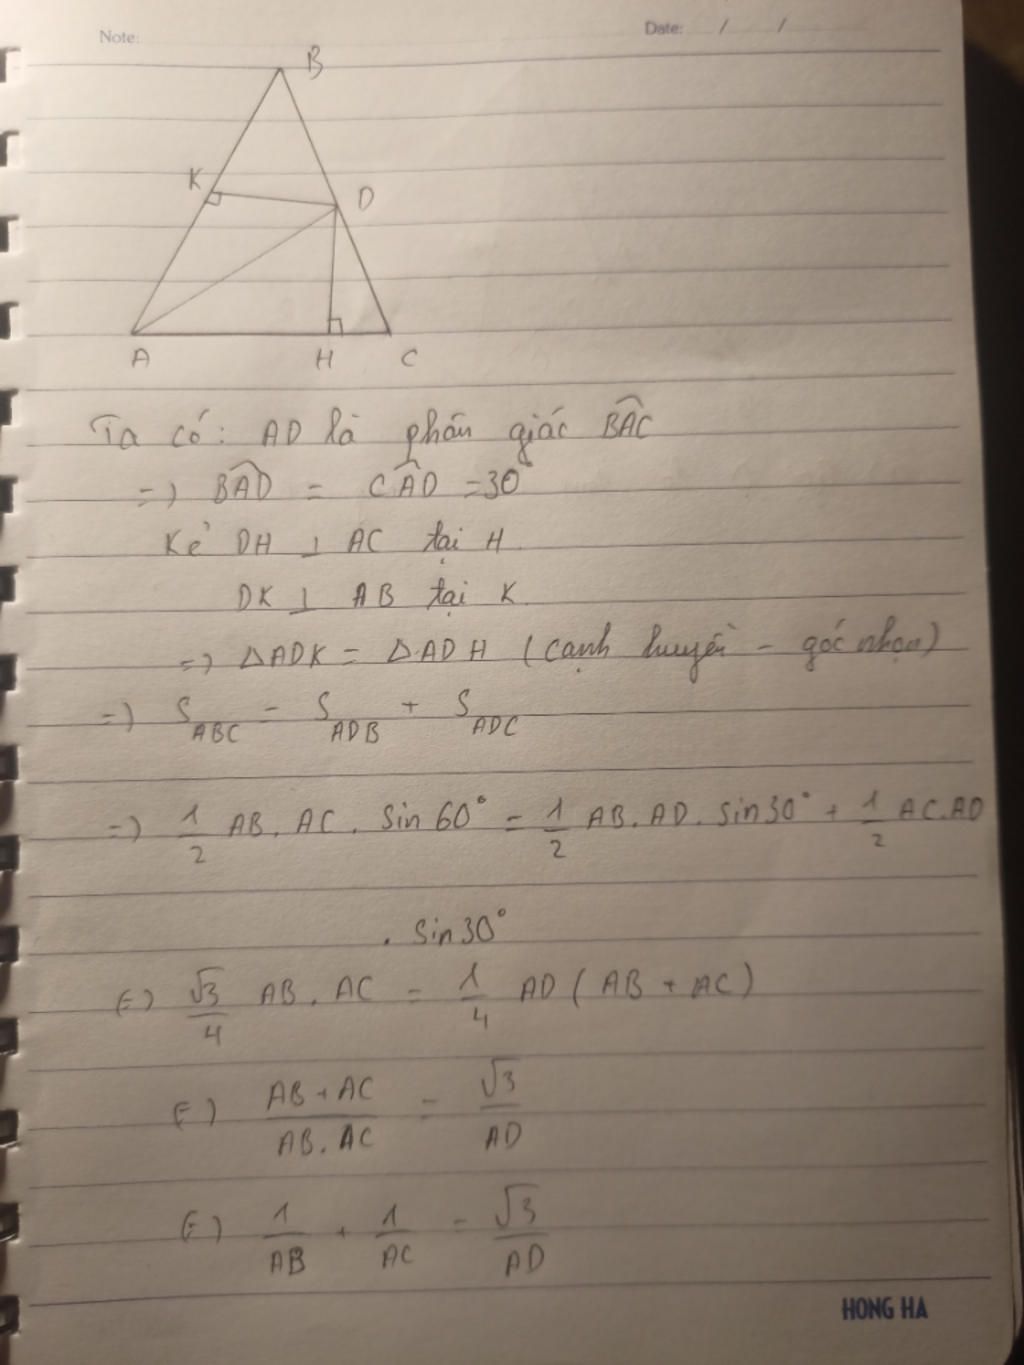 Note:
Date: / /
B
K
D
A
H
C
Ta có: AD là phân giác BAC
=> BAD = CAD = 30°
Kẻ DH ⊥ AC tại H
DK ⊥ AB tại K
=> ΔADK = ΔADH (cạnh huyền - góc nhọn)
=> S_ABC = S_ADB + S_ADC
=> 1/2 AB. AC. Sin 60° = 1/2 AB. AD. Sin30° + 1/2 AC.AD
. Sin30°
(=) √3/4 AB. AC = 1/4 AD (AB + AC)
(=) (AB + AC)/(AB. AC) = √3/AD
(=) 1/AB + 1/AC = √3/AD
HONG HA